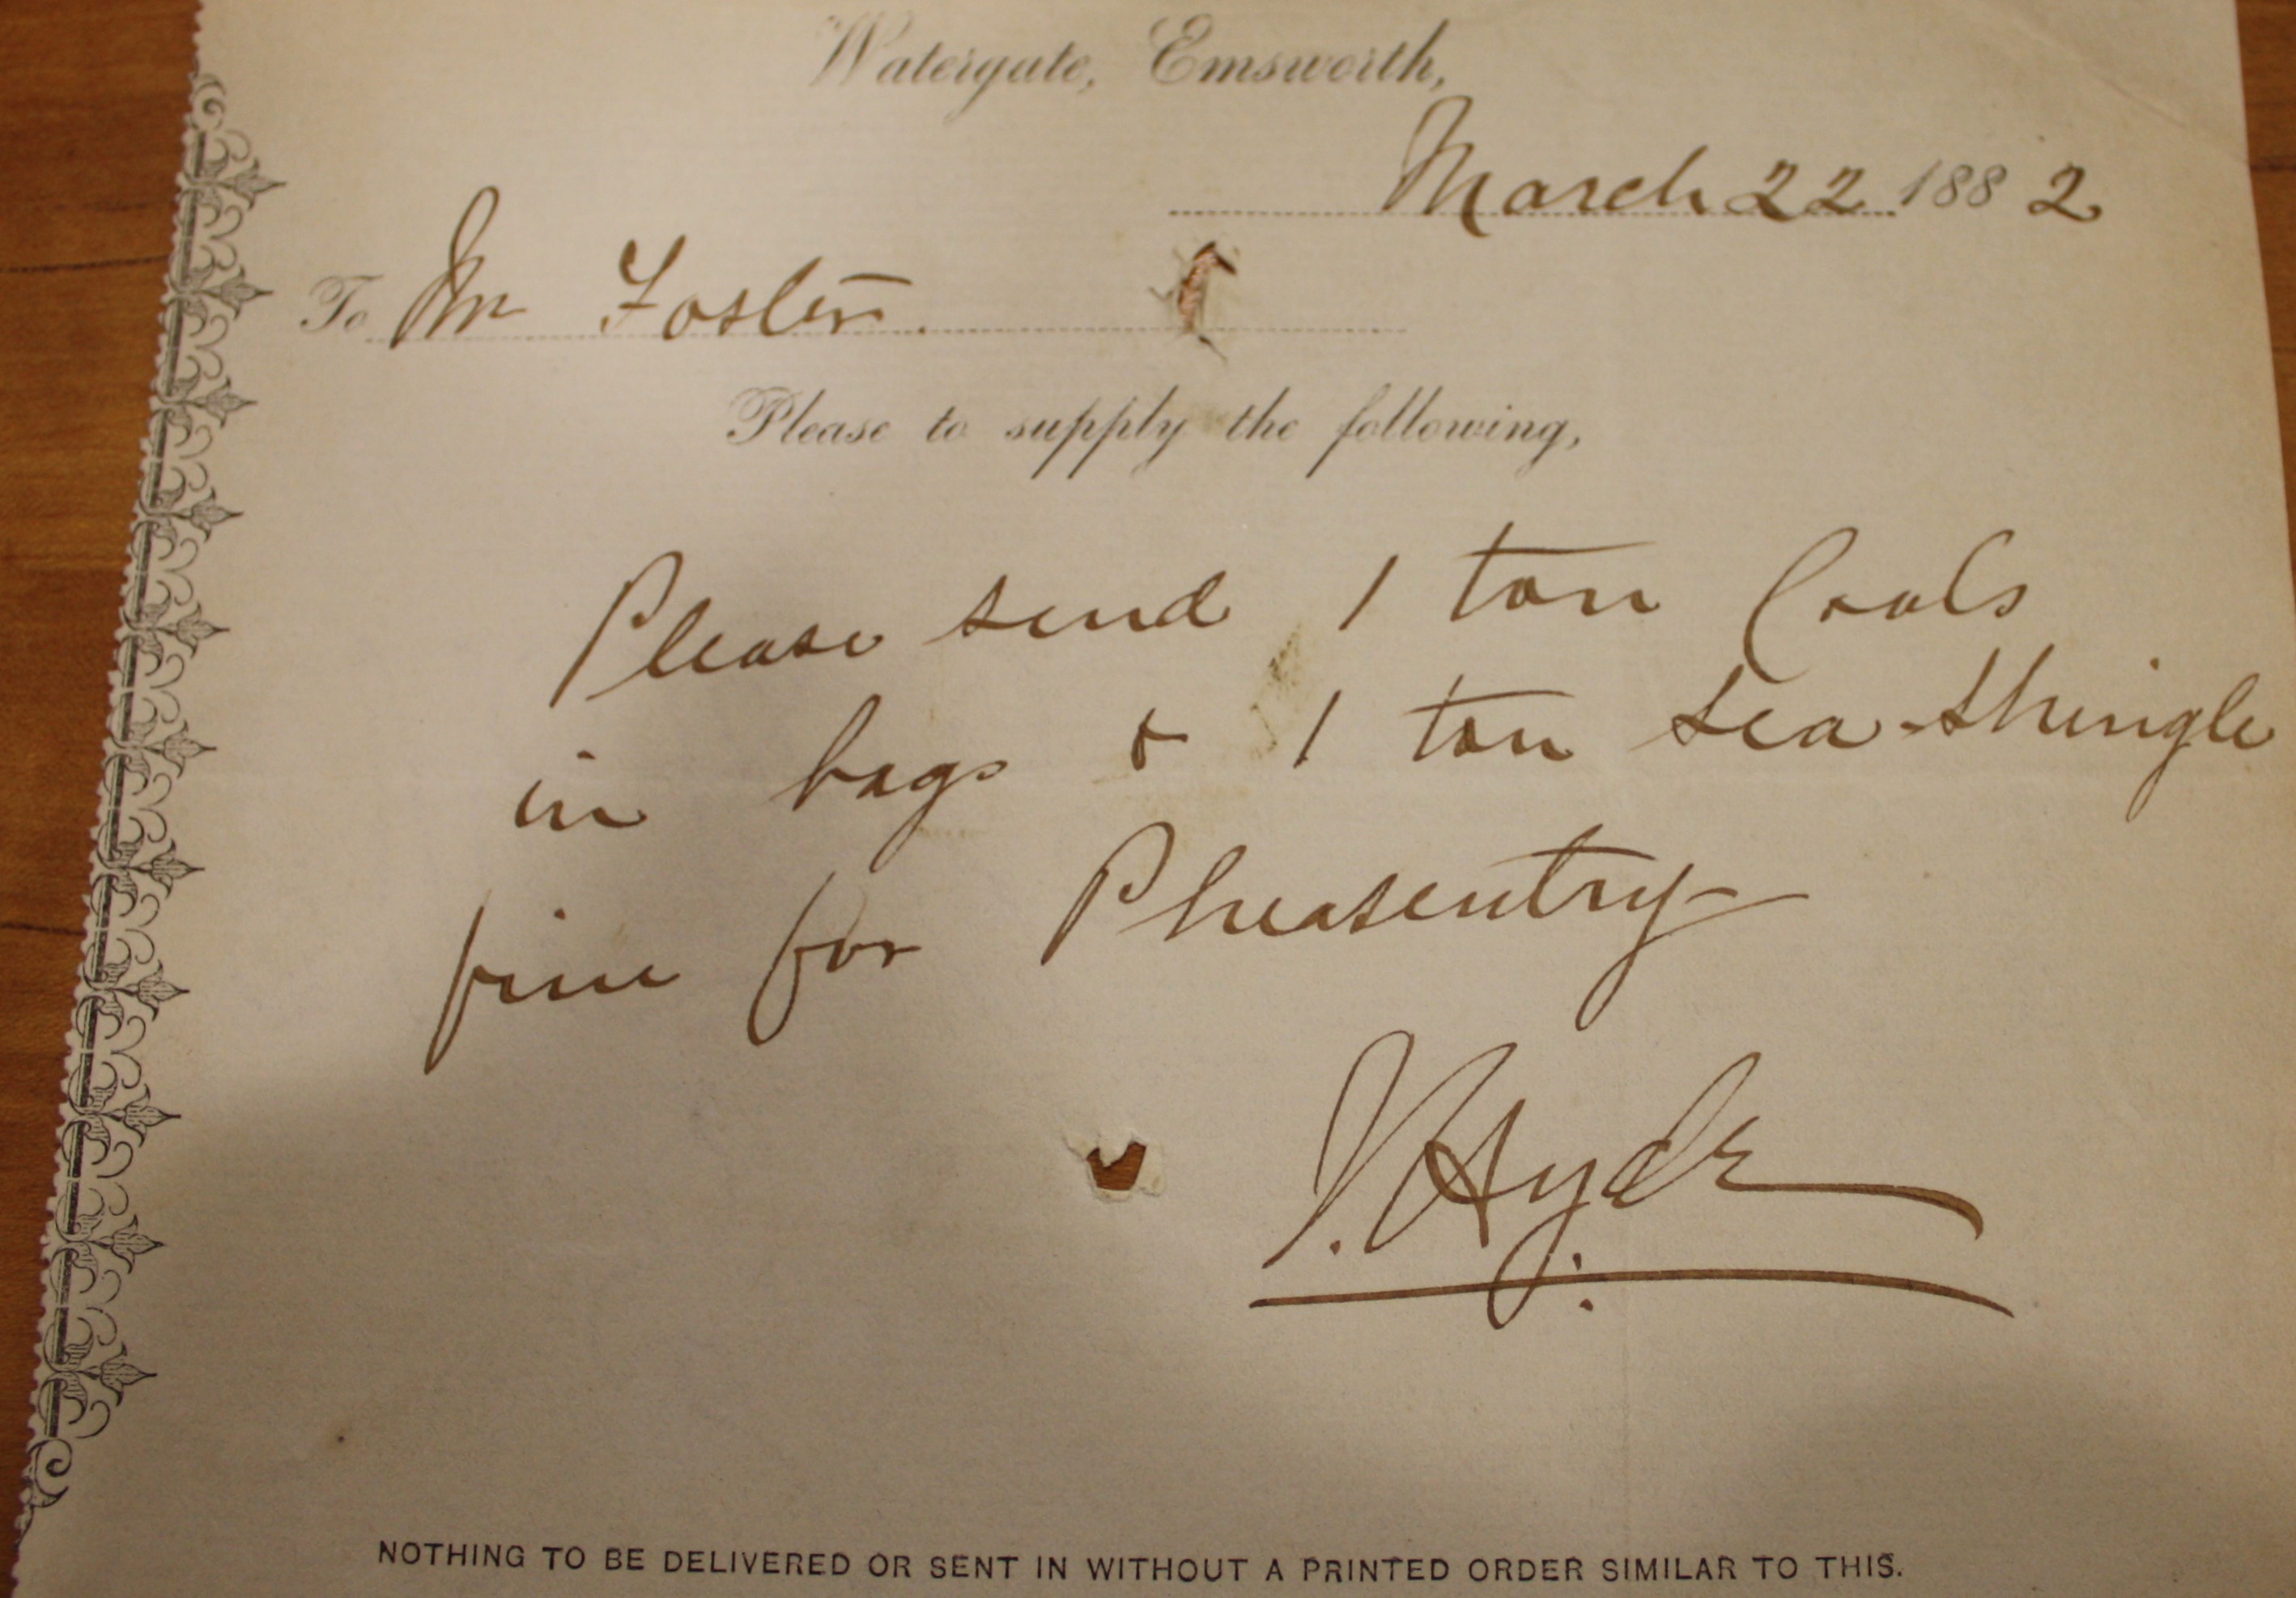 Watergate, Emsworth,
March 22 1882
To Mr Foster.
Please to supply the following,
Please send 1 ton Coals
in bags & 1 ton sea-shingle
fine for Pheasentry
J. Hyde
NOTHING TO BE DELIVERED OR SENT IN WITHOUT A PRINTED ORDER SIMILAR TO THIS.